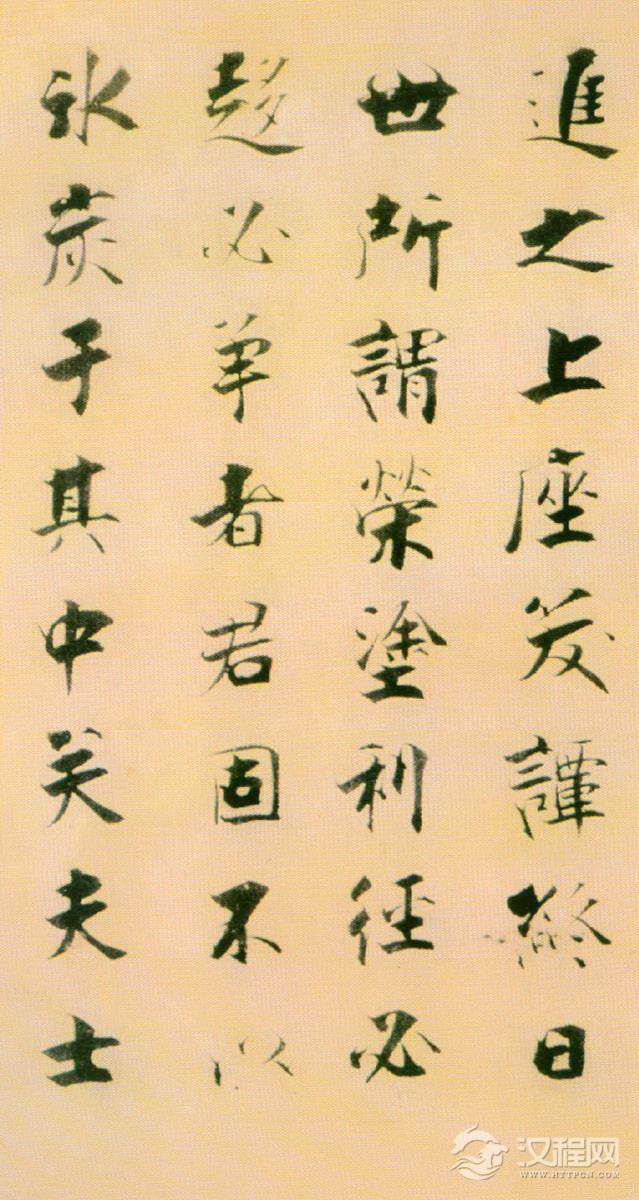 進之上座笑譁終日
世所謂榮塗利徑必
趍必争者君固不以
氷炭于其中矣夫士
汉程网
WWW.HTTPCN.COM